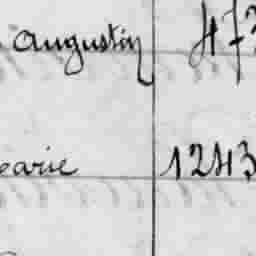 augustin 473
carie 1243